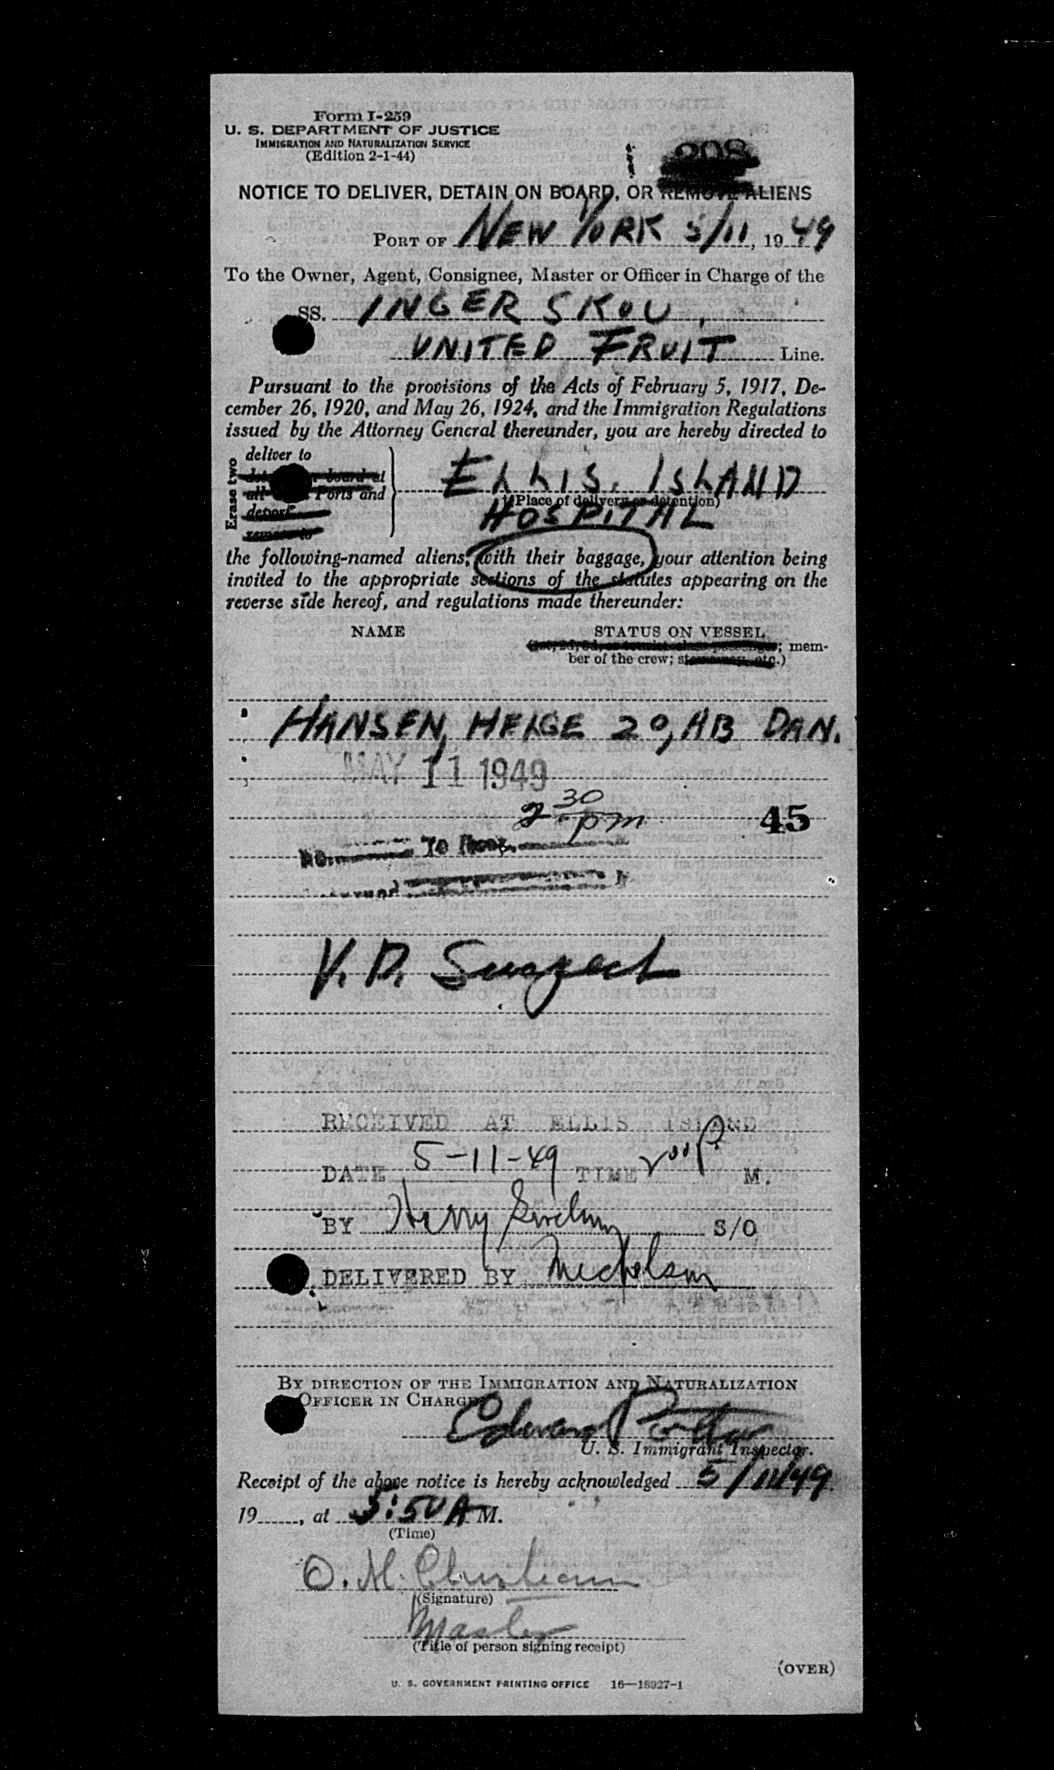 Form I-259
U. S. DEPARTMENT OF JUSTICE
IMMIGRATION AND NATURALIZATION SERVICE
(Edition 2-1-44)
208
NOTICE TO DELIVER, DETAIN ON BOARD, OR REMOVE ALIENS
PORT OF NEW YORK 5/11, 1949
To the Owner, Agent, Consignee, Master or Officer in Charge of the
SS. INGER SKOU,
UNITED FRUIT Line.
Pursuant to the provisions of the Acts of February 5, 1917, De-
cember 26, 1920, and May 26, 1924, and the Immigration Regulations
issued by the Attorney General thereunder, you are hereby directed to
Erase two
deliver to
board at
all Ports and
deport
remove to
ELLIS ISLAND
(Place of delivery or detention)
HOSPITAL
the following-named aliens, with their baggage, your attention being
invited to the appropriate sections of the statutes appearing on the
reverse side hereof, and regulations made thereunder:
NAME STATUS ON VESSEL
; mem-
ber of the crew; etc.)
HANSEN, HELGE 20, AB DAN.
MAY 11 1949
2 30 pm 45
To
V. D. Suspect
RECEIVED AT ELLIS ISLAND
DATE 5-11-49 TIME 200 P. M.
BY Harry S/O
DELIVERED BY Michelson
BY DIRECTION OF THE IMMIGRATION AND NATURALIZATION
OFFICER IN CHARGE
Edward
U. S. Immigrant Inspector.
Receipt of the above notice is hereby acknowledged 5/11/49
19, at 5:50 A M.
(Time)
O. M. Christiansen
(Signature)
Master
(Title of person signing receipt)
(OVER)
U. S. GOVERNMENT PRINTING OFFICE 16—18927-1